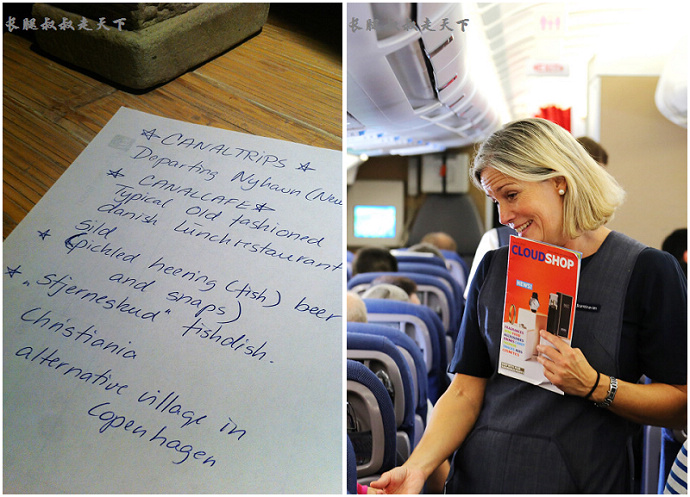 长腿叔叔走天下
☆ CANALTRIPS ☆
Departing Nyhawn (New
☆ CANALCAFE ☆
Typical Old fashioned
danish lunchrestaurant
Sild
☆ (pickled heering (fish) beer
and snaps)
☆ „Stjerneskud" fishdish.
Christiania
alternative village in
Copenhagen
长腿叔叔走天下
CLOUDSHOP
NEWS!